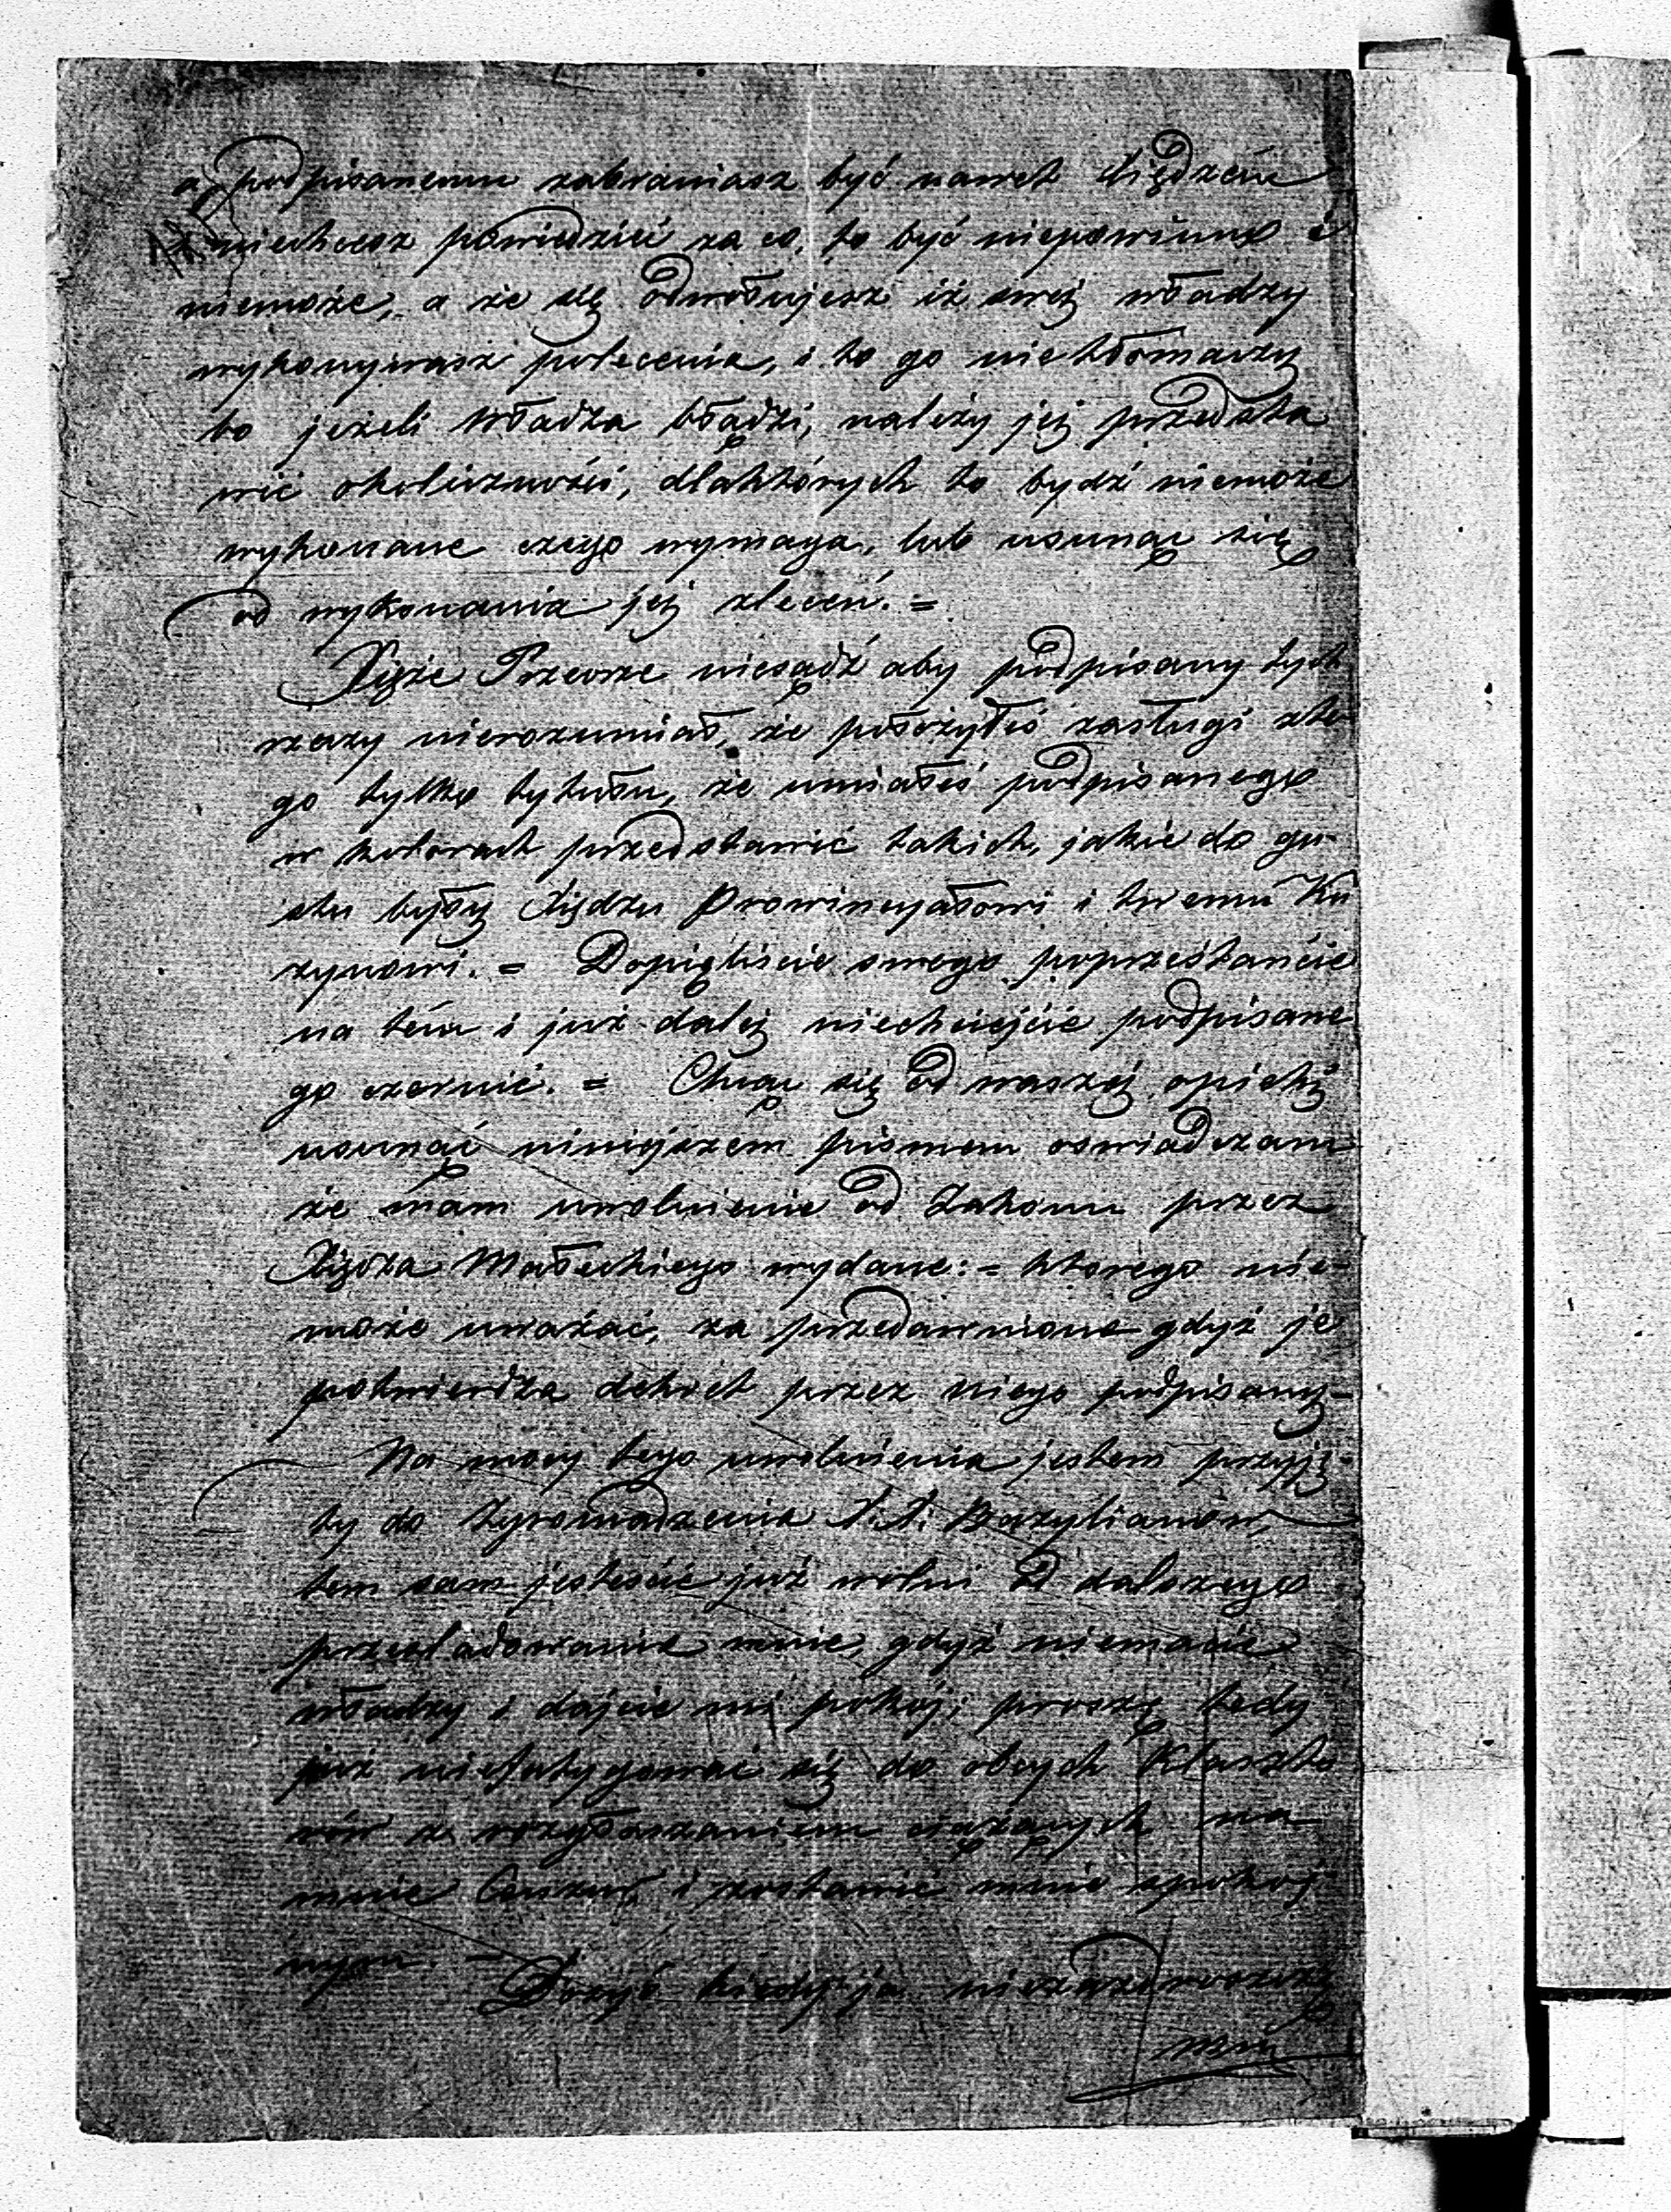 a podpisanemu zabraniasz być nawet Xiędzem
niechcesz powiedzieć za co, to być niepowinno i
niemoże, a że się odwołujesz iż swej władzy
wykonywasz polecenia, i to go nietłomaczy
bo jeżeli władza błądzi, należy jej przedsta
wić okoliczności, dlaktórych to bydź niemoże
wykonane czego wymaga, lub usunąć się
od wykonania jej zleceń. =
Xięże Przeorze niesądź aby podpisany tych
rzeczy nierozumiał, że położyłeś zasługi z te
go tylko tytułu, że umiałeś podpisanego
w kolorach przedstawić takich, jakie do gu-
stu były Xiędzu Prowincyałowi i twemu Ku
zynowi. = Dopięliście swego poprzestańcie
na tém i już dalej niechciejcie podpisane
go czernić. = Chcąc się od waszej opieki
usunąć niniejszém pismem oswiadczam
że mam uwolnienie od Zakonu przez
Xiędza Małeckiego wydane: = ktorego nie-
może uważać, za przedawnione gdyż je
potwierdza dekret przez niego podpisany =
Na mocy tego uwolnienia jestem przyję-
ty do Zgromadzenia X.X. Bazylianów,
tem sam jesteście już wolni od dalszego
prześladowania mnie, gdyż niemacie
władzy i dajcie mi pokój; proszę tedy
już niefatygować się do obcych Klaszto
rów z rozgłaszaniem ciążących na
mnie Cenzur, i zostawić mnie spokoj
nym. =
Dosyć kiedy ja niezazdroszczę